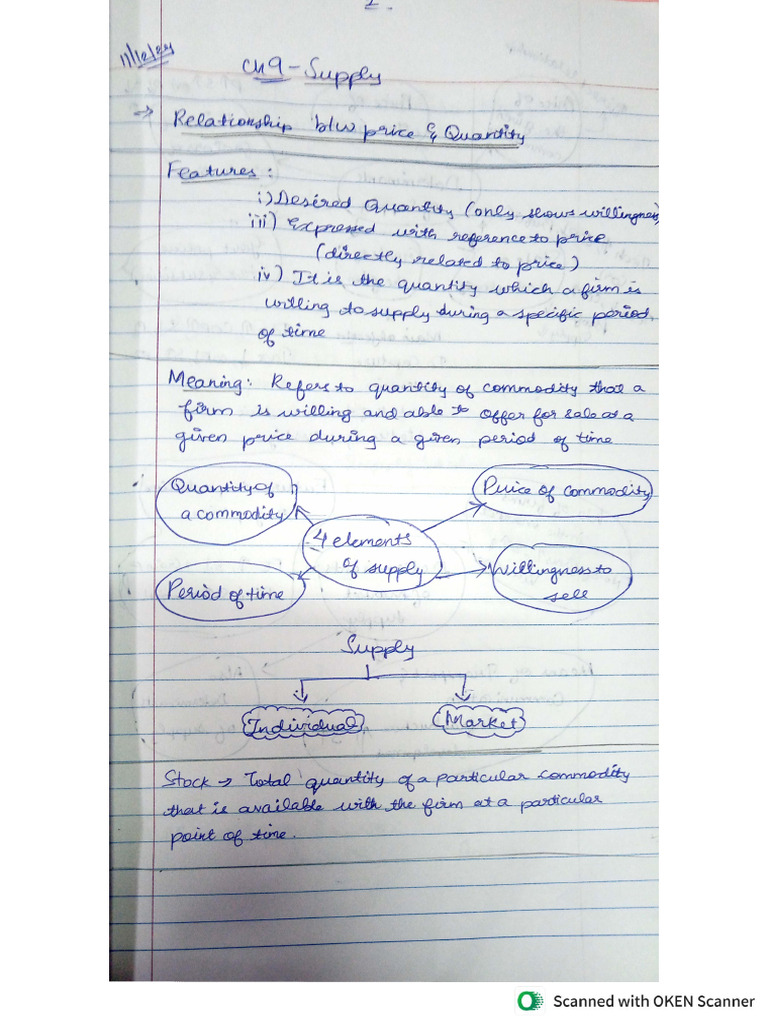 1.
11/12/24
Ch 9 - Supply
→ Relationship b/w price & Quantity
Features :
i) Desired Quantity (only shows willingness)
iii) Expressed with reference to price
(directly related to price)
iv) It is the quantity which a firm is
willing to supply during a specific period
of time
Meaning: Refers to quantity of commodity that a
firm is willing and able to offer for sale at a
given price during a given period of time
Quantity of
a commodity
Price of commodity
4 elements
of supply
Period of time
Willingness to
sell
Supply
Individual
Market
Stock → Total quantity of a particular commodity
that is available with the firm at a particular
point of time.
Scanned with OKEN Scanner